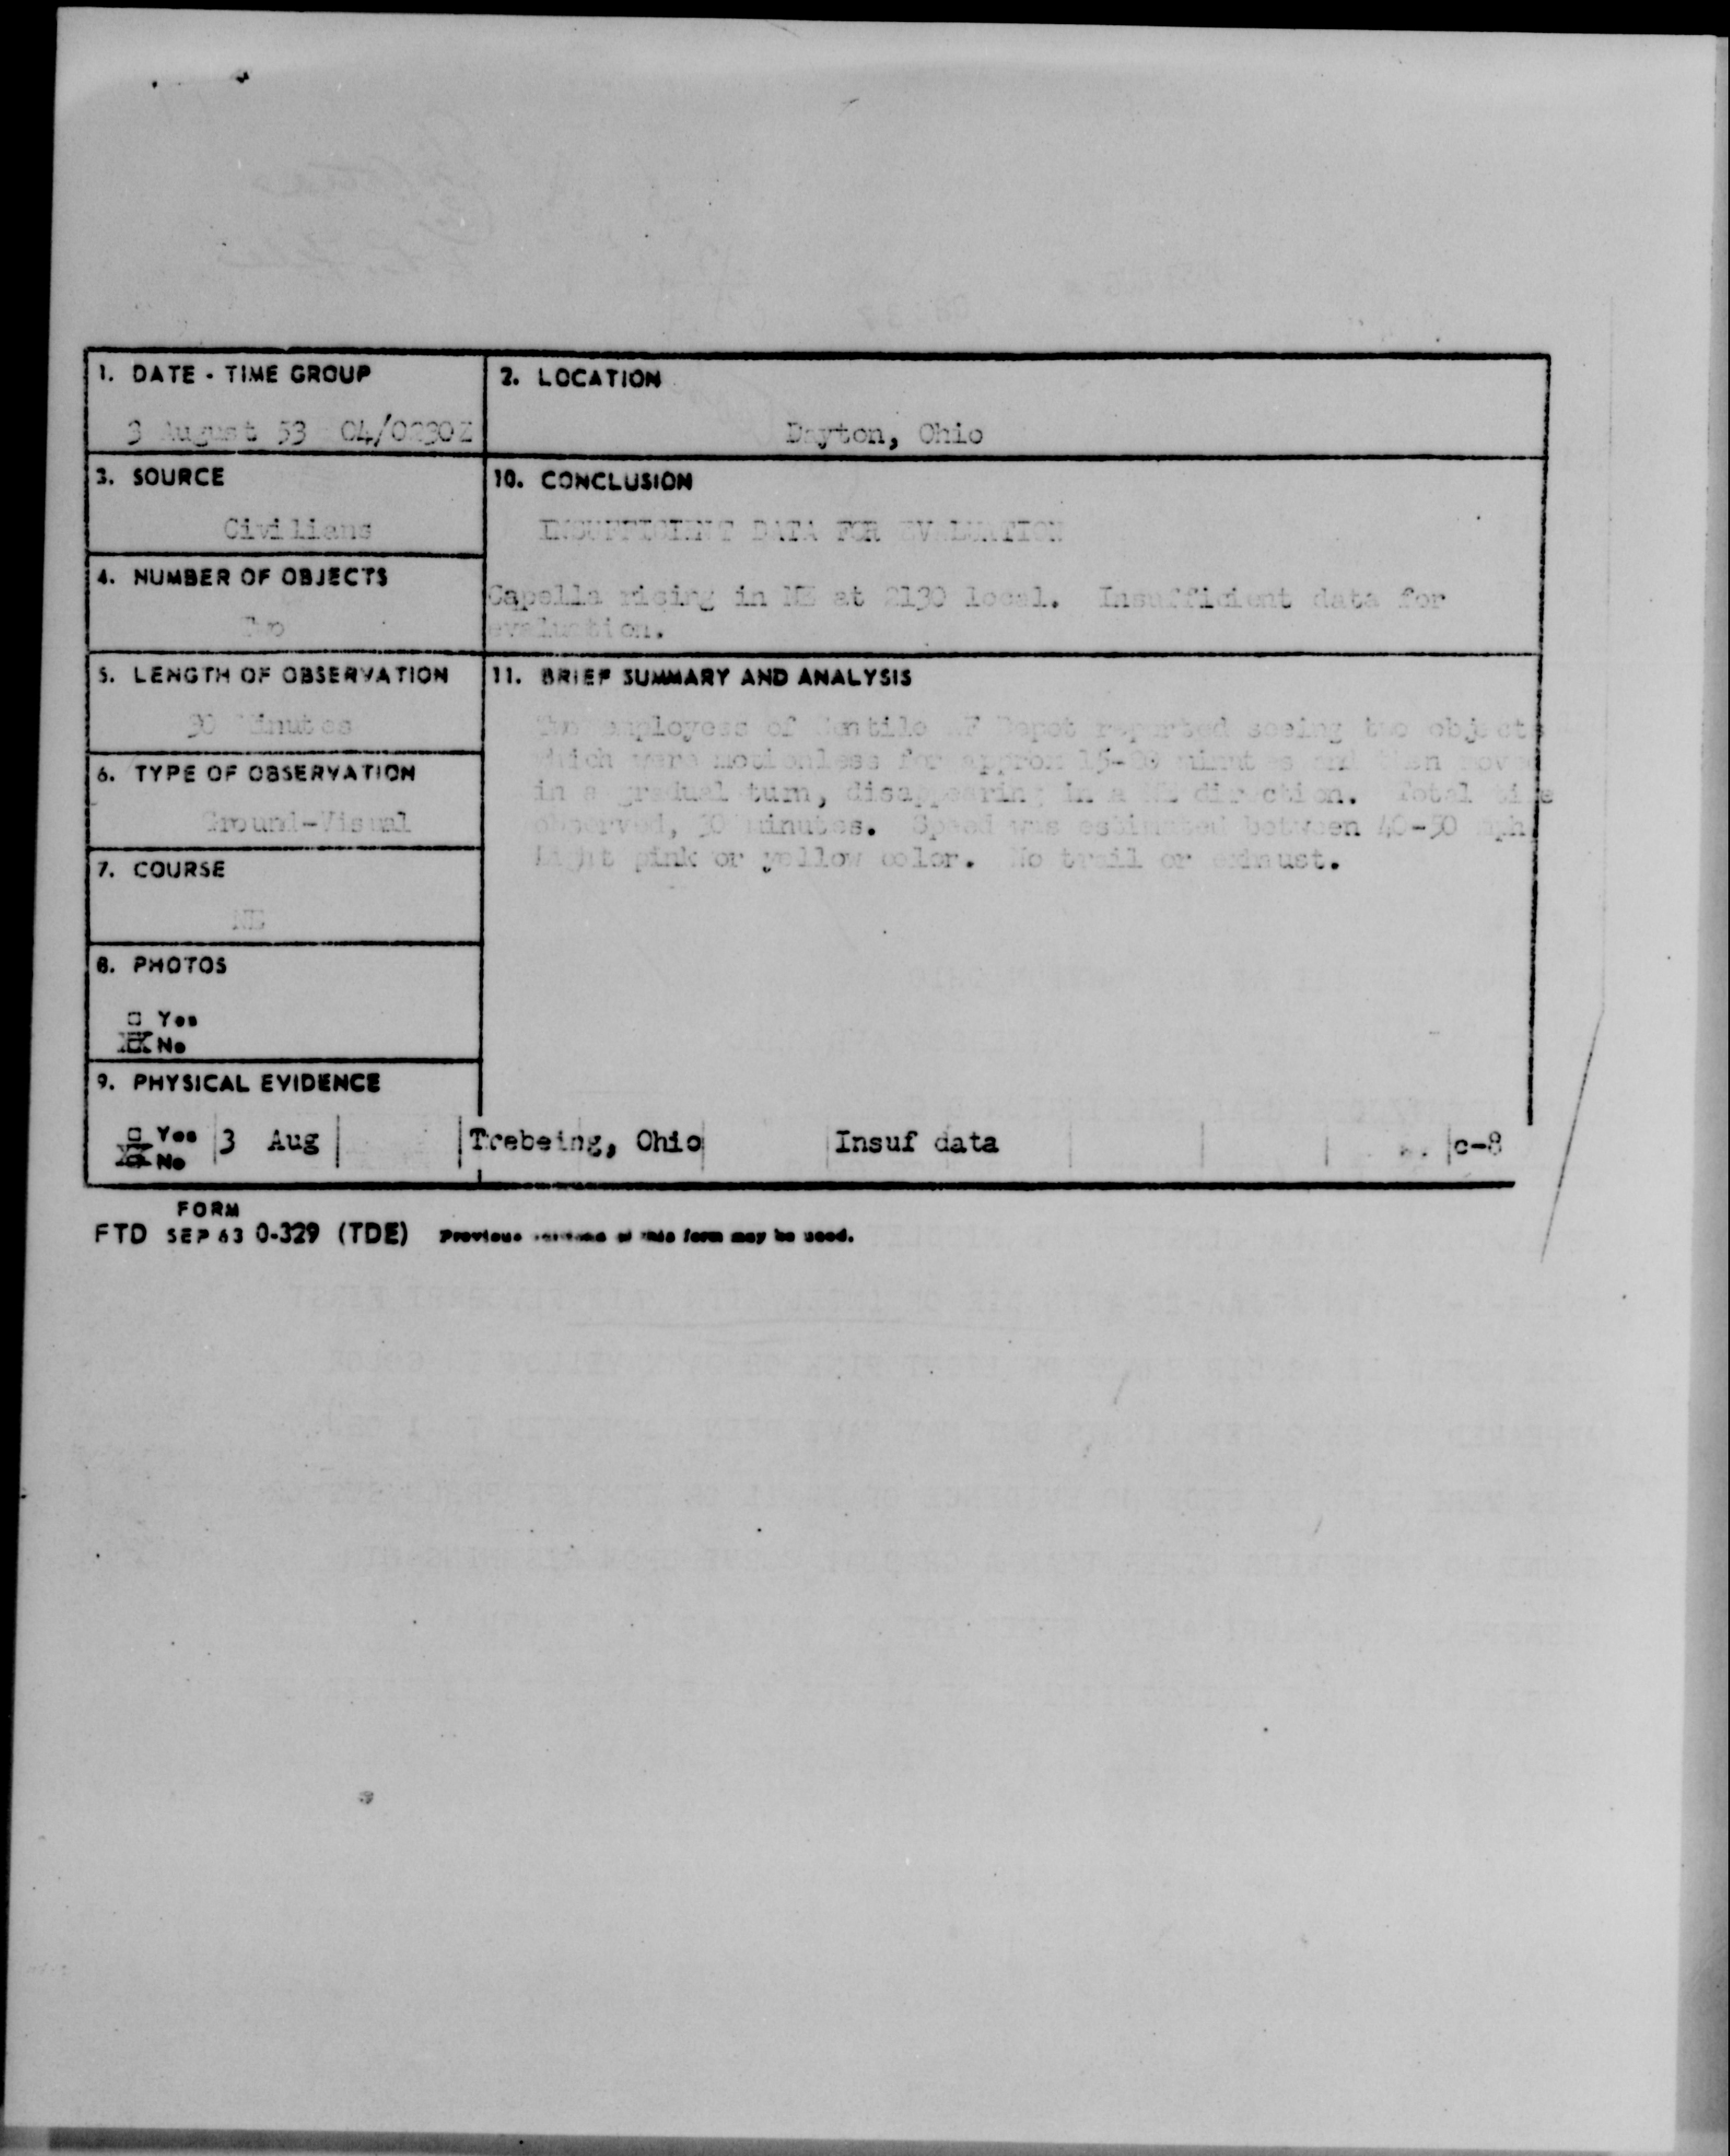 1. DATE - TIME GROUP
3 August 53 04/0230Z
2. LOCATION
Dayton, Ohio
3. SOURCE
Civilians
10. CONCLUSION
INSUFFICIENT DATA FOR EVALUATION
Capella rising in NE at 2130 local. Insufficient data for
evaluation.
4. NUMBER OF OBJECTS
Two
5. LENGTH OF OBSERVATION
30 Minutes
11. BRIEF SUMMARY AND ANALYSIS
Two employees of Gentile AF Depot reported seeing two objects
which were motionless for approx 15-20 minutes and then moved
in a gradual turn, disappearing in a NE direction. Total time
observed, 30 minutes. Speed was estimated between 40-50 mph
Light pink or yellow color. No trail or exhaust.
6. TYPE OF OBSERVATION
Ground-Visual
7. COURSE
NE
8. PHOTOS
□ Yes
☒ No
9. PHYSICAL EVIDENCE
□ Yes
☒ No
3 Aug Trebeing, Ohio Insuf data c-8
FORM
FTD SEP 63 0-329 (TDE) Previous editions of this form may be used.